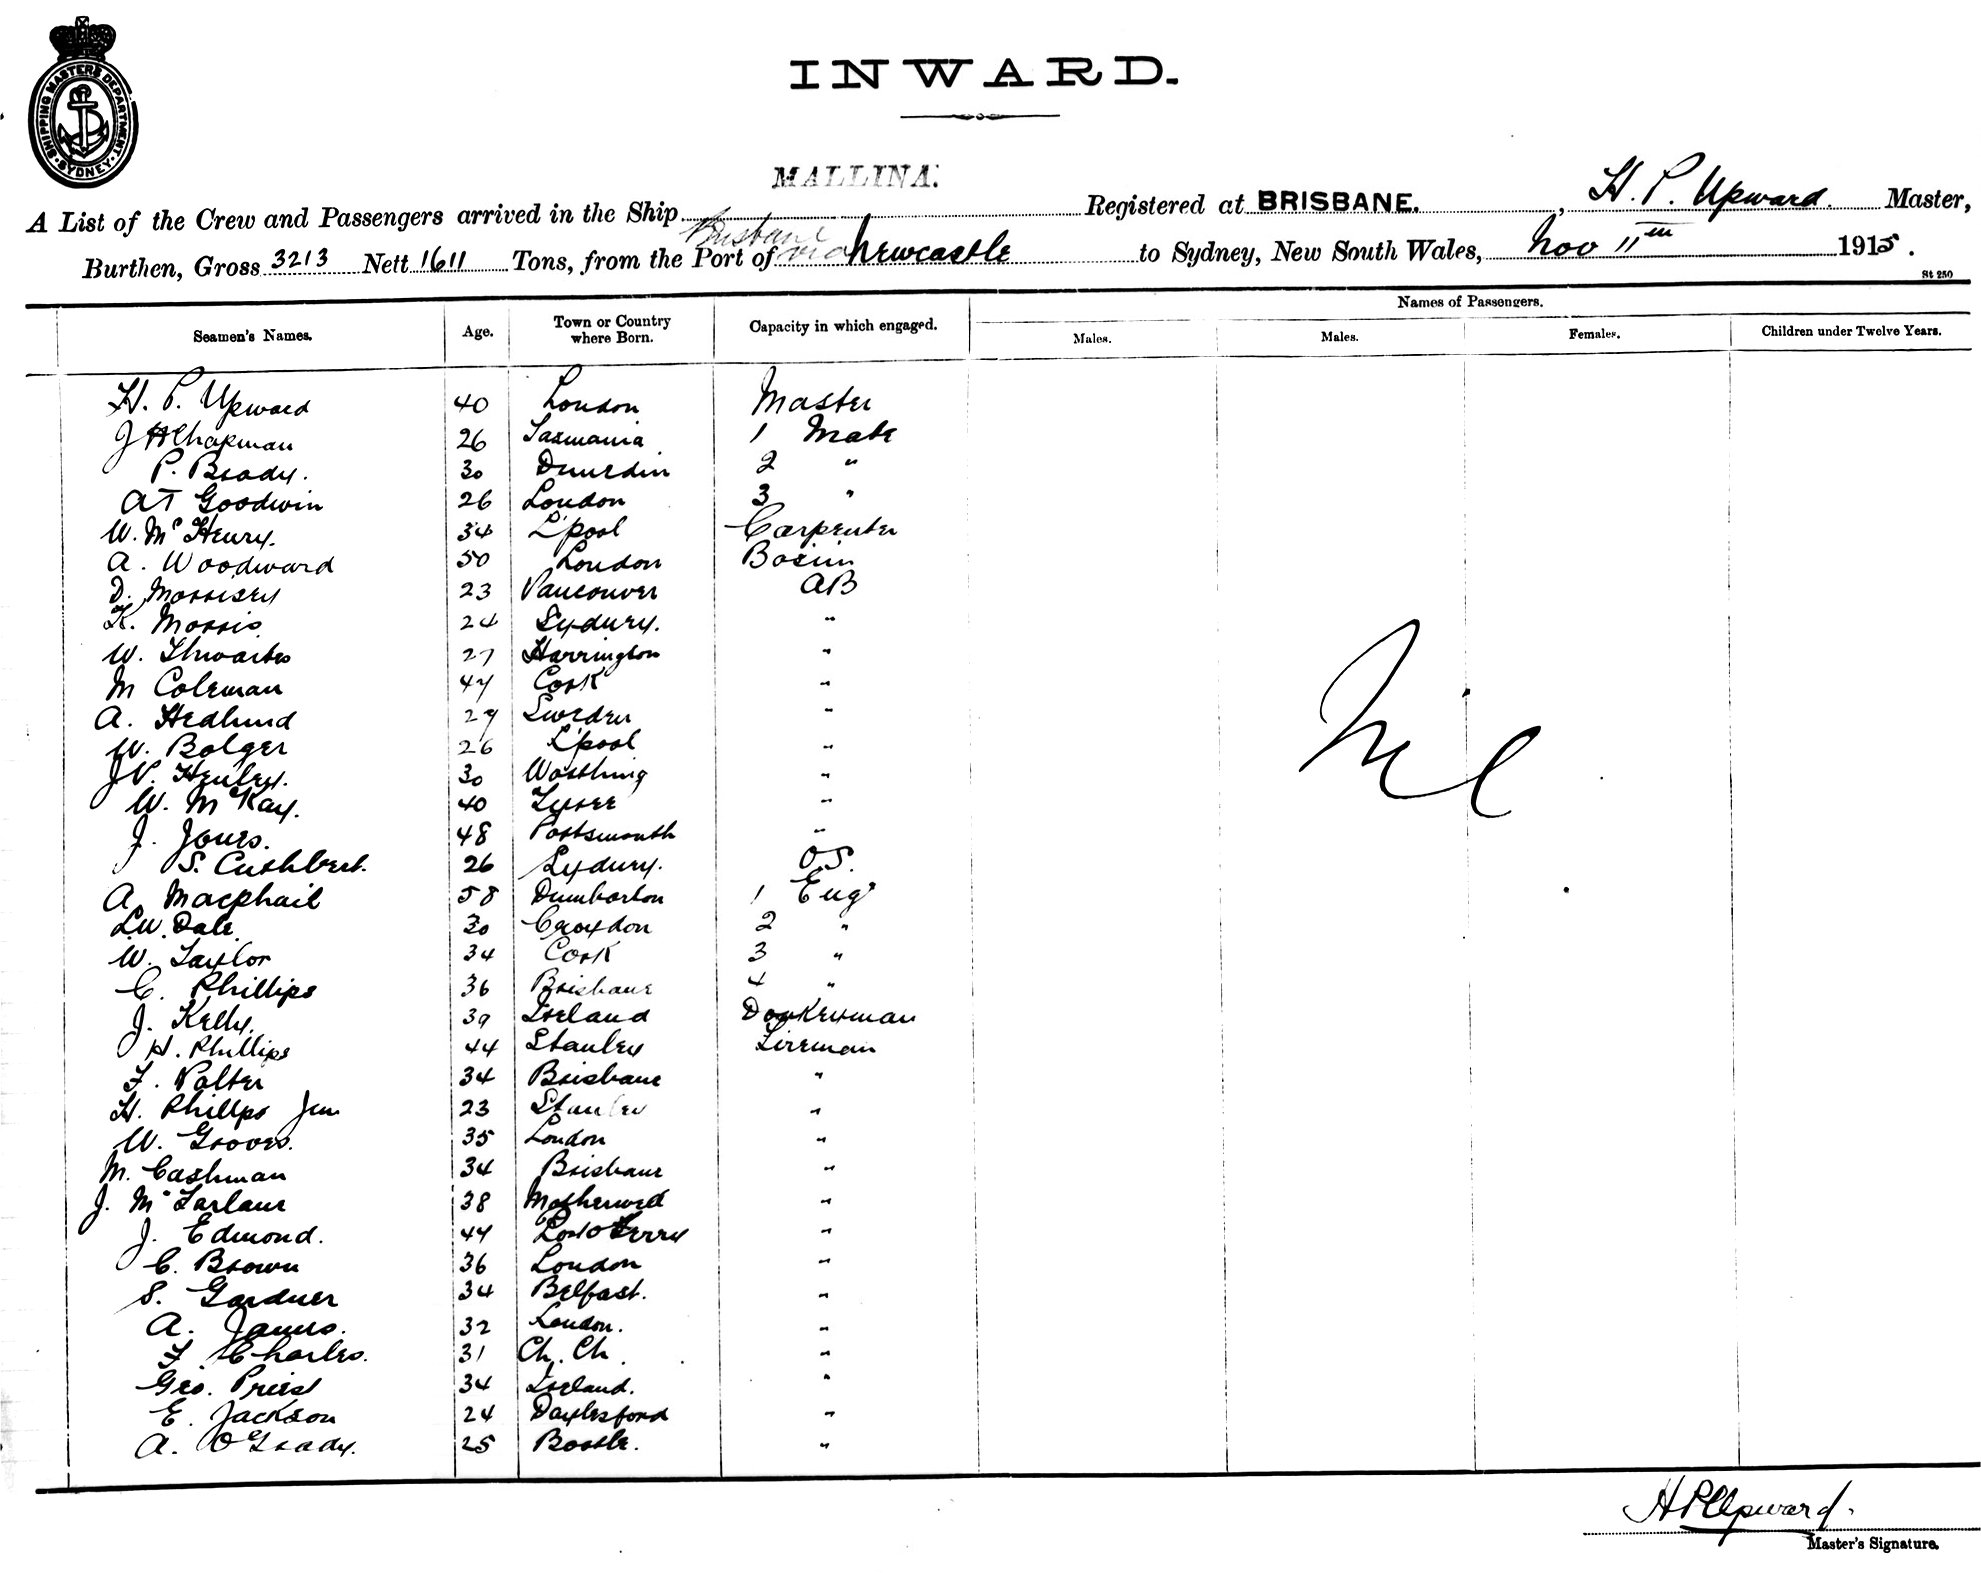 SHIPPING MASTERS DEPARTMENT. SYDNEY.
INWARD.
MALLINA.
A List of the Crew and Passengers arrived in the Ship Registered at BRISBANE. H. P. Upward. Master,
Brisbane
Burthen, Gross 3213 Nett 1611 Tons, from the Port of via Newcastle to Sydney, New South Wales, Nov 11th 1915.
St 250
Names of Passengers.
Seamen's Names. Age. Town or Country where Born. Capacity in which engaged. Males. Males. Females. Children under Twelve Years.
H. P. Upward 40 London Master
J H Chapman 26 Tasmania 1 Mate
P. Brady. 30 Dunedin 2 "
A T Goodwin 26 London 3 "
W. McHenry. 34 L'pool Carpenter
A. Woodward 50 London Bosun
D. Morrisey 23 Vancouver AB
K. Morris 24 Sydney. "
W. Thwaites 27 Harrington "
M Coleman 47 Cork "
A. Hedlund 29 Sweden "
W. Bolger 26 L'pool "
J V. Henley. 30 Worthing "
W. McKay. 40 "
J. Jones. 48 Portsmouth "
S. Cuthbert. 26 Sydney. O.S.
A. Macphail 58 Dumbarton 1 Engr
L.W. Dale. 30 Croydon 2 "
W. Taylor 34 Cork 3 "
C. Phillips 36 Brisbane 4 "
J. Kelly. 39 Ireland Donkeyman
H. Phillips 44 Stanley Fireman
F. 34 Brisbane "
H. Phillps Jun 23 Stanley "
W. Groves. 35 London "
M. Cashman 34 Brisbane "
J. McFarlane 38 Motherwell "
J. Edmond. 44 "
C. Brown 36 London "
S. Gardner 34 Belfast. "
A. James. 32 London. "
F Charles. 31 Ch. Ch. "
Geo. Priest 34 Ireland. "
E. Jackson 24 Daylesford "
A. O'Grady. 25 Bootle. "
Nil
H P Upward.
Master's Signature.